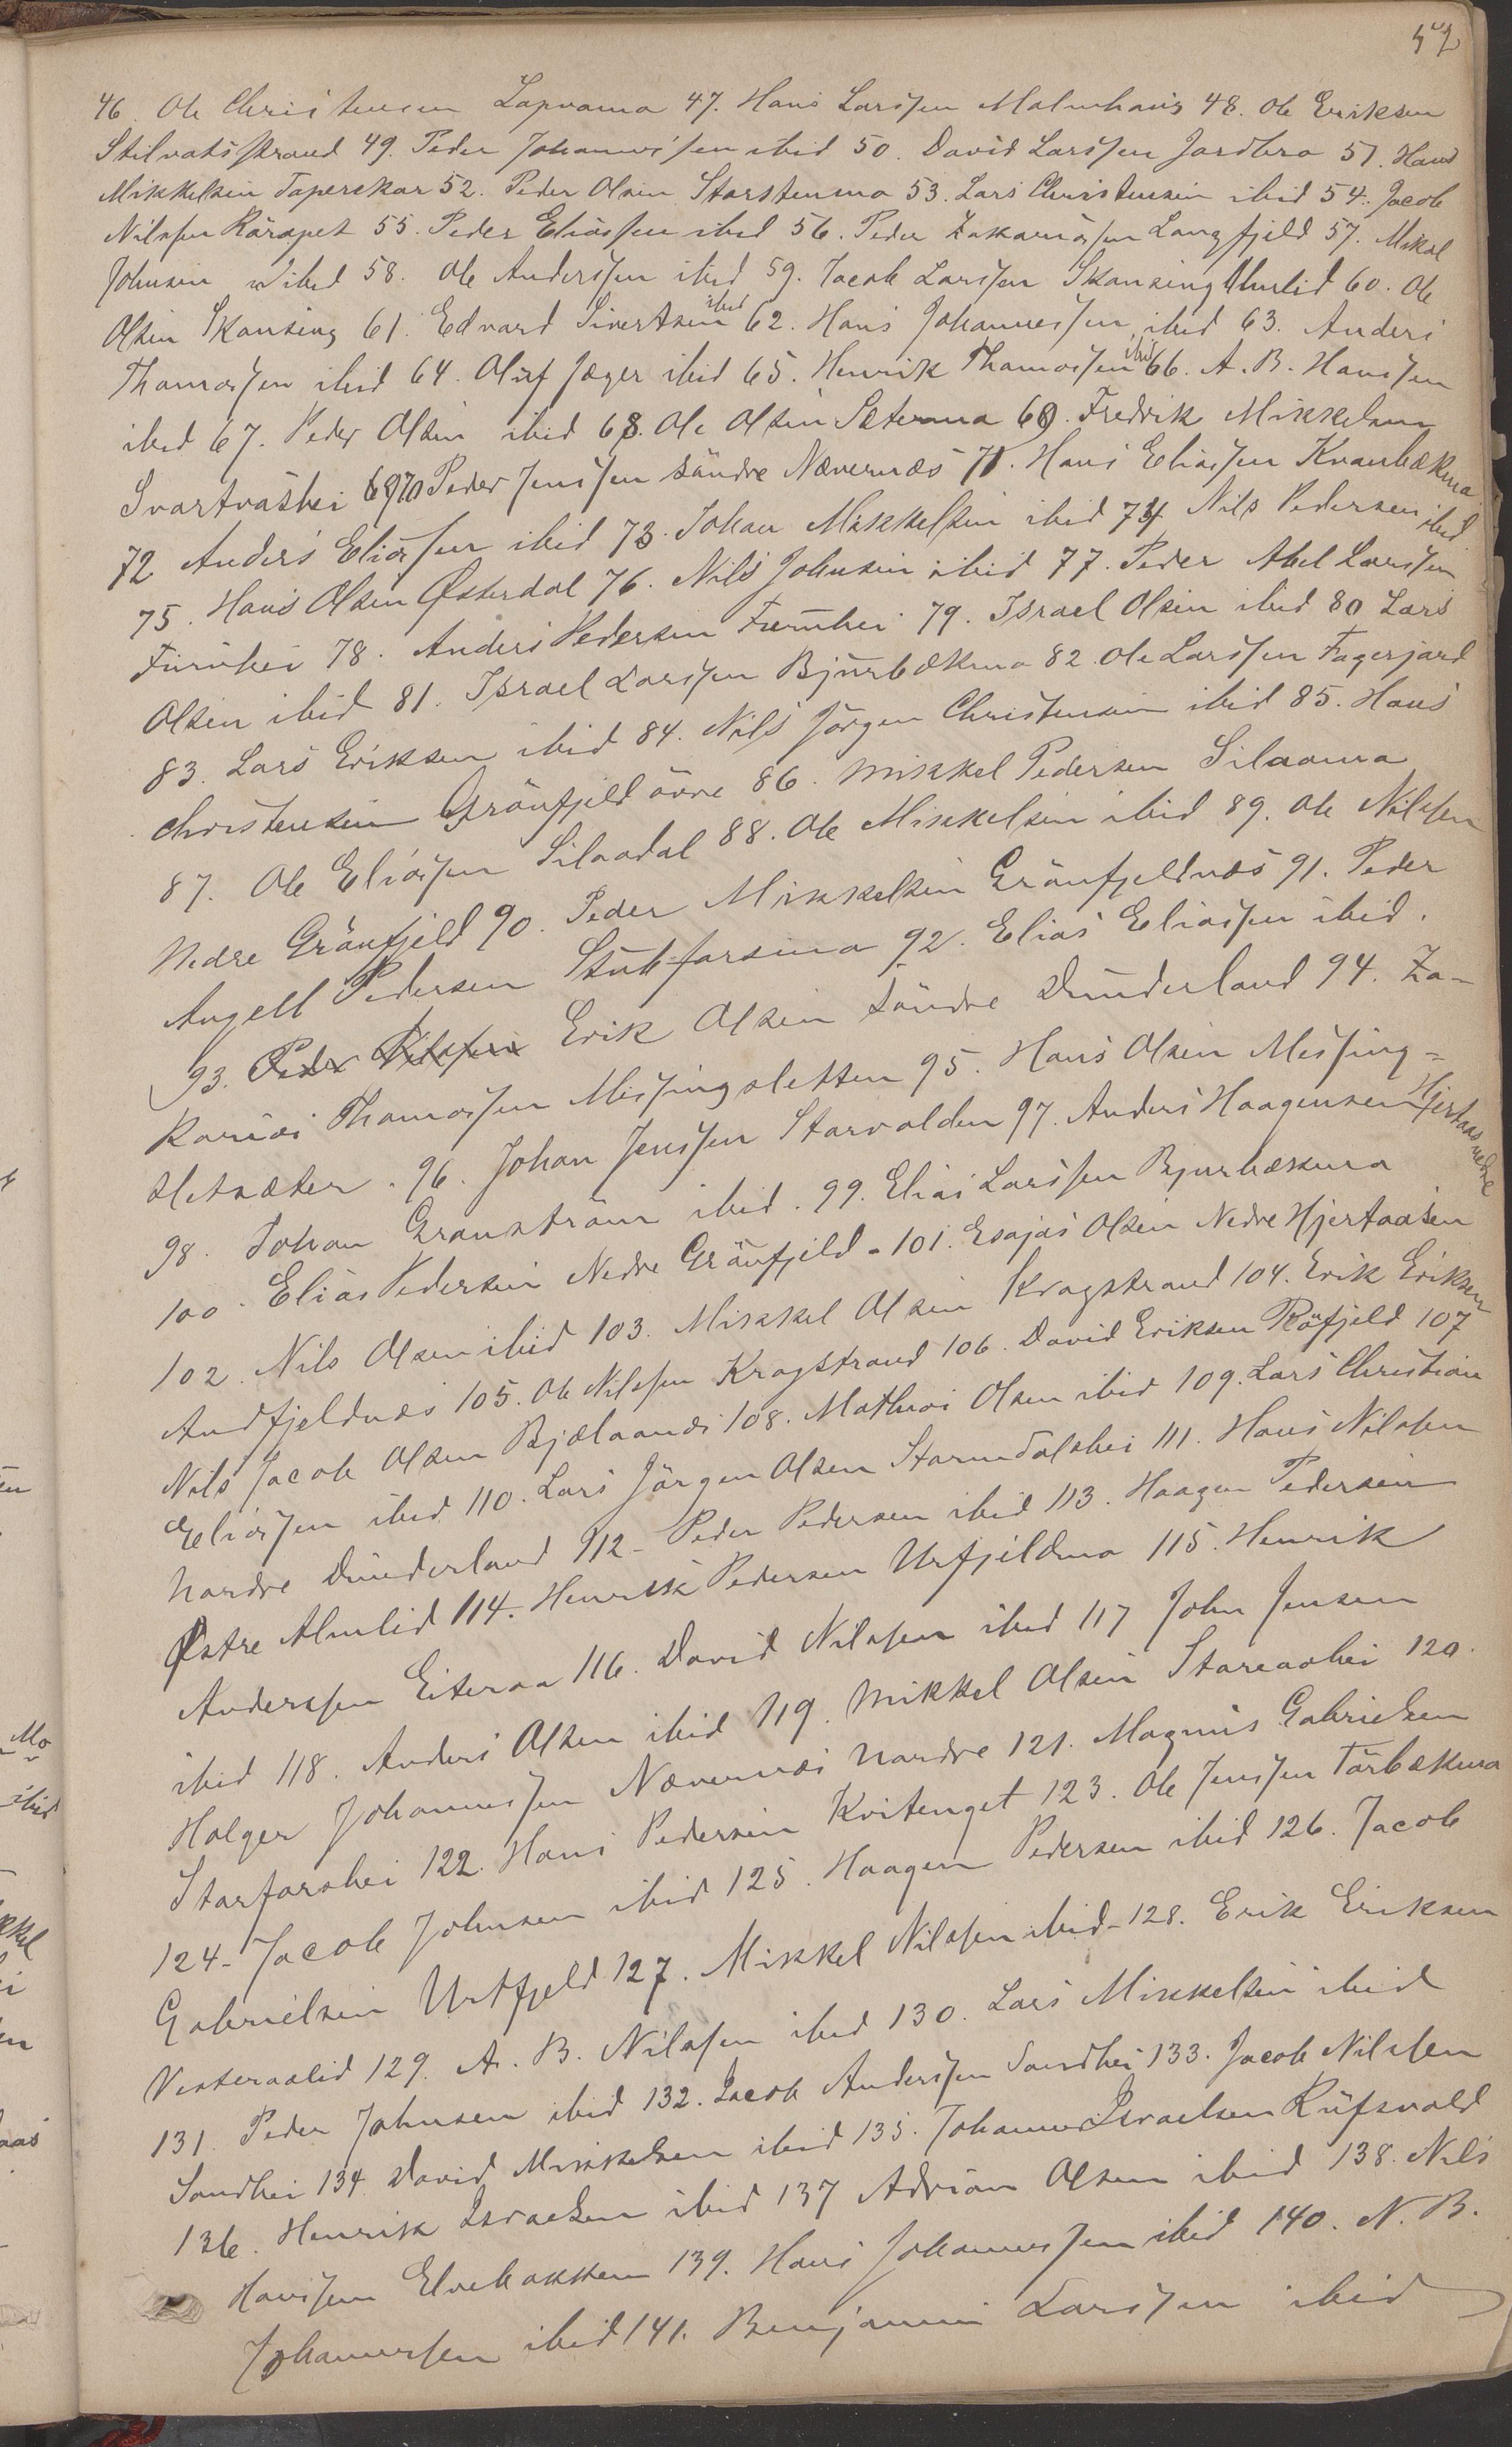 52
46. Ole Christensen Lapvama 47. Hans Larssen Malmhaug 48. Ole Eriksen
Stilvatsstrand 49. Peder Johannessen ibid 50. David Larssen Jordbro 51. Hans
Mikkelsen Taperskar 52. Peder Olsen Storstenmo 53. Lars Christensen ibid 54. Jacob
Nilssen Raraget 55. Peder Eliassen ibid 56. Peder Zakariassen Langfjeld 57. Mikal
Johnsen ibid 58. Ole Anderssen ibid 59. Jacob Larssen Skansing Almlid 60. Ole
Olsen Skansing 61. Edvard Sivertsen ibid 62. Hans Johannessen ibid 63. Anders
Thomassen ibid 64. Oluf Jæger ibid 65. Henrik Thomassen ibid 66. A. B. Hanssen
ibid 67. Peder Olsen ibid 68. Ole Olsen Setermo 69. Fredrik Mikkelsen
Svartvashei 70 Peder Jenssen Söndre Nævernæs 71. Hans Eliassen Kvanbækmo
72 Anders Eliassen ibid 73. Johan Mikkelsen ibid 74 Nils Pedersen ibid
75. Hans Olsen Østerdal 76. Nils Johnsen ibid 77. Peder Abel Larssen
Furuhei 78. Anders Pedersen Furuhei 79. Israel Olsen ibid 80 Lars
Olsen ibid 81. Israel Larssen Bjurbækmo 82. Ole Larssen Fagerjord
83. Lars Eriksen ibid 84. Nils Jörgen Christensen ibid 85. Hans
Christensen Grönfjeld övre 86. Mikkel Pedersen Silaamo
87. Ole Eliassen Silaadal 88. Ole Mikkelsen ibid 89. Ole Nilssen
Nedre Grönfjeld 90. Peder Mikkelsen Grönfjeldnæs 91. Peder
Angell Pedersen Stubforsmo 92. Elias Eliassen ibid.
93. Peder Nilssen Erik Olsen Söndre Dunderland 94. Za-
karias Thomassen Messingsletten 95. Hans Olsen Messing=
sletsæter. 96. Johan Jenssen Storvolden 97. Anders Haagensen Hjertaas nedre
98. Johan Granström ibid. 99. Elias Larssen Bjurbækmo
100. Elias Pedersen Nedre Grönfjeld - 101. Esajas Olsen Nedre Hjertaasen
102. Nils Olsen ibid 103. Mikkel Olsen Kragstrand 104. Erik Eriksen
Andfjeldnæs 105. Ole Nilssen Kragstrand 106. David Eriksen Röfjeld 107
Nils Jacob Olsen Bjælaanæs 108. Mathias Olsen ibid 109. Lars Christian
Eliassen ibid 110. Lars Jörgen Olsen Stormdalshei 111. Hans Nilssen
Nordre Dunderland 112 - Peder Pedersen ibid 113. Haagen Pedersen
Østre Almlid 114. Henrik Pedersen Urfjeldmo 115. Henrik
Anderssen Eiteraa 116. David Nilssen ibid 117 John Jensen
ibid 118. Anders Olsen ibid 119. Mikkel Olsen Storeaahei 120.
Holger Johannessen Nævernæs Nordre 121. Magnus Gabrielsen
Storforshei 122. Hans Pedersen Kvitenget 123. Ole Jenssen Törbækmo
124 - Jacob Johnsen ibid 125. Haagen Pedersen ibid 126. Jacob
Gabrielsen Urtfjeld 127. Mikkel Nilssen ibid - 128. Erik Eriksen
Vesteraalid 129. A. B. Nilssen ibid 130. Lars Mikkelsen ibid
131. Peder Johnsen ibid 132. Jacob Anderssen Sandhei 133. Jacob Nilssen
Sandhei 134. David Mikkelsen ibid 135. Johannes Israelsen Rufsvold
136. Henrik Israelsen ibid 137 Adrian Olsen ibid 138. Nils
Hanssen Elvebakken 139. Hans Johannessen ibid 140. N. B.
Johannessen ibid 141. Benjamin Larssen ibid